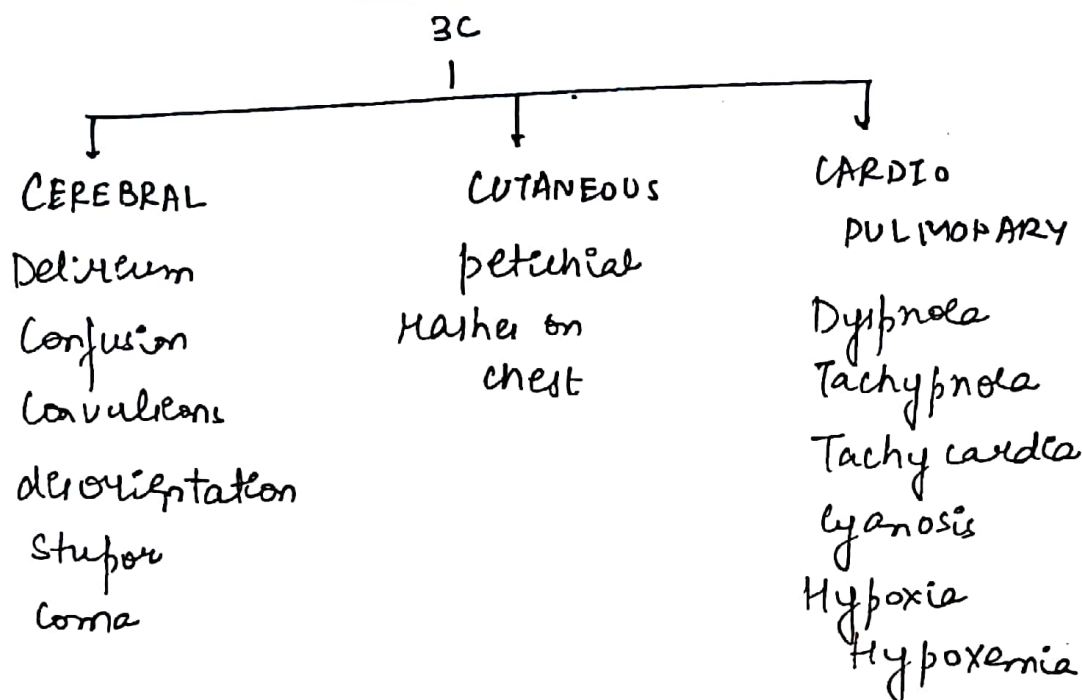 3C
CEREBRAL
Delirium
Confusion
Convulsions
disorientation
Stupor
Coma
CUTANEOUS
petichial
Rashes on
chest
CARDIO
PULMONARY
Dyspnoea
Tachypnoea
Tachy cardia
Cyanosis
Hypoxia
Hypoxemia